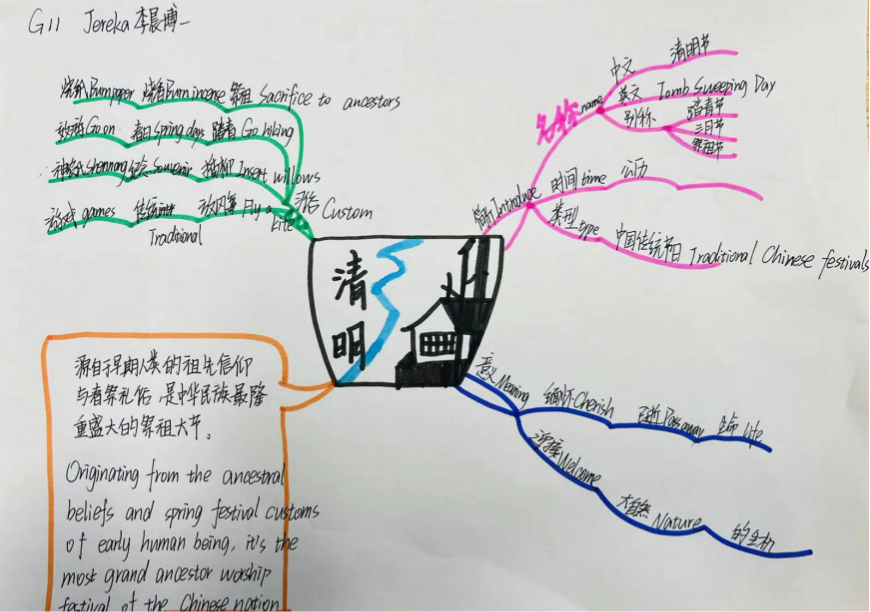 G11 Jereka 李晨博
烧纸 Burn paper 烧香 Burn incense 祭祖 Sacrifice to ancestors
Go on 春日 spring days 踏青 Go hiking
Shennong 纪念 Souvenir 插柳 Insert willows
游戏 games 传统 Traditional 放风筝 Fly a kite
习俗 Custom
清明
简介 Introduce
名称 name
中文 清明节
英文 Tomb Sweeping Day
别称 踏青节
三月节
祭祖节
时间 time 公历
类型 type 中国传统节日 Traditional Chinese festivals
意义 Meaning
缅怀 Cherish Pass away 生命 life
迎接 Welcome
大自然 Nature 的生机
源自于早期人类的祖先信仰
与春祭礼俗 是中华民族最隆
重盛大的祭祖大节。
Originating from the ancestral
beliefs and spring festival customs
of early human being, it's the
most grand ancestor worship
festival of the Chinese nation